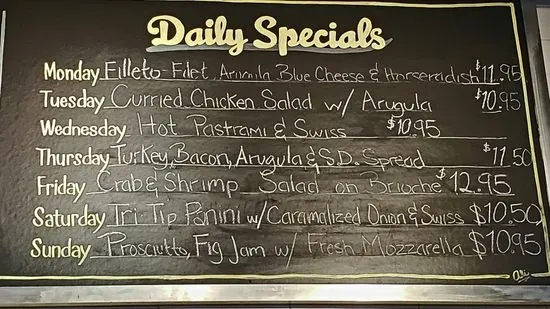 Daily Specials
Monday Filleto Filet, Arumila Blue Cheese & Horseradish $11.95
Tuesday Curried Chicken Salad w/ Arugula $10.95
Wednesday Hot Pastrami & Swiss $10.95
Thursday Turkey, Bacon, Arugula & S.D. Spread $11.50
Friday Crab & Shrimp Salad on Brioche $12.95
Saturday Tri Tip Panini w/ Caramalized Onion & Swiss $10.50
Sunday Prosciutto, Fig Jam w/ Fresh Mozzarella $10.95